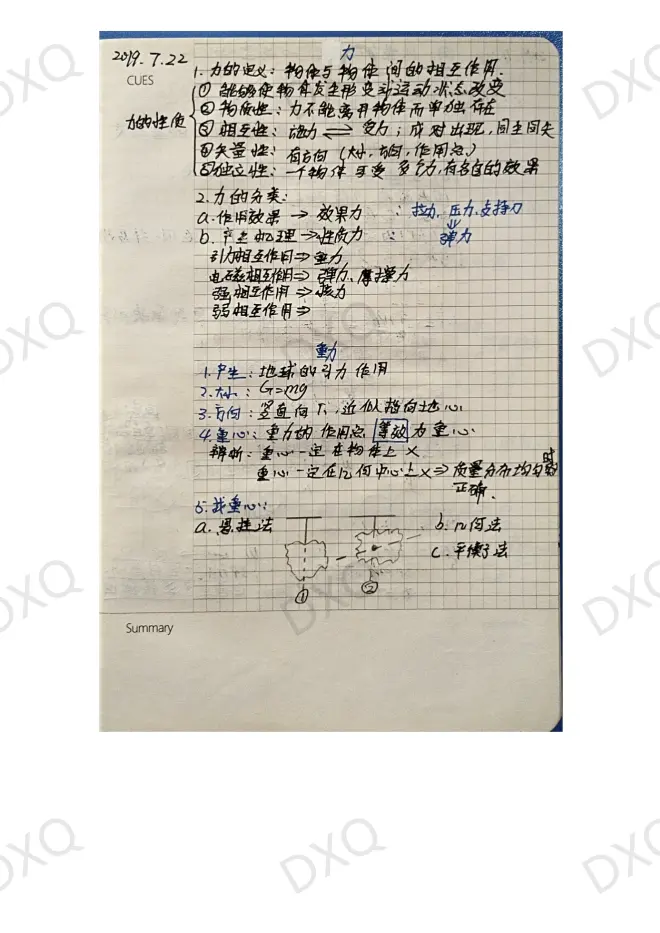 2019.7.22
CUES
力
1.力的定义:物体与物体间的相互作用.
力的性质
①能够使物体发生形变或运动状态改变
②物质性:力不能离开物体而单独存在
③相互性:施力⇌受力;成对出现,同生同灭
④矢量性:有方向(大小,方向,作用点)
⑤独立性:一个物体可受多个力,有各自的效果
2.力的分类:
a.作用效果→效果力:拉力,压力,支持力
⇓
b.产生机理→性质力:弹力
引力相互作用⇒重力
电磁相互作用⇒弹力、摩擦力
强相互作用⇒核力
弱相互作用⇒
重力
1.产生:地球的引力作用
2.大小:G=mg
3.方向:竖直向下,近似指向地心
4.重心:重力的作用点 等效为重心.
辨析:重心一定在物体上 ×
重心一定在几何中心上×⇒质量分布均匀时
正确.
5.找重心:
a.悬挂法
b.几何法
c.平衡法
①
②
Summary
DXQ
DXQ
DXQ
DXQ
DXQ
DXQ
DXQ
DXQ
DXQ
DXQ
DXQ
DXQ